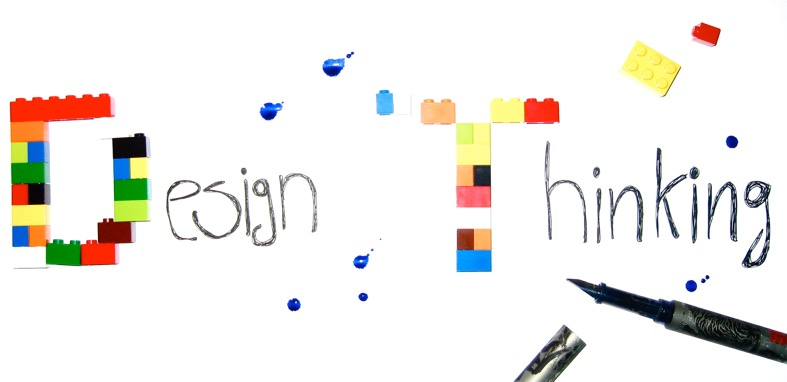 Design Thinking